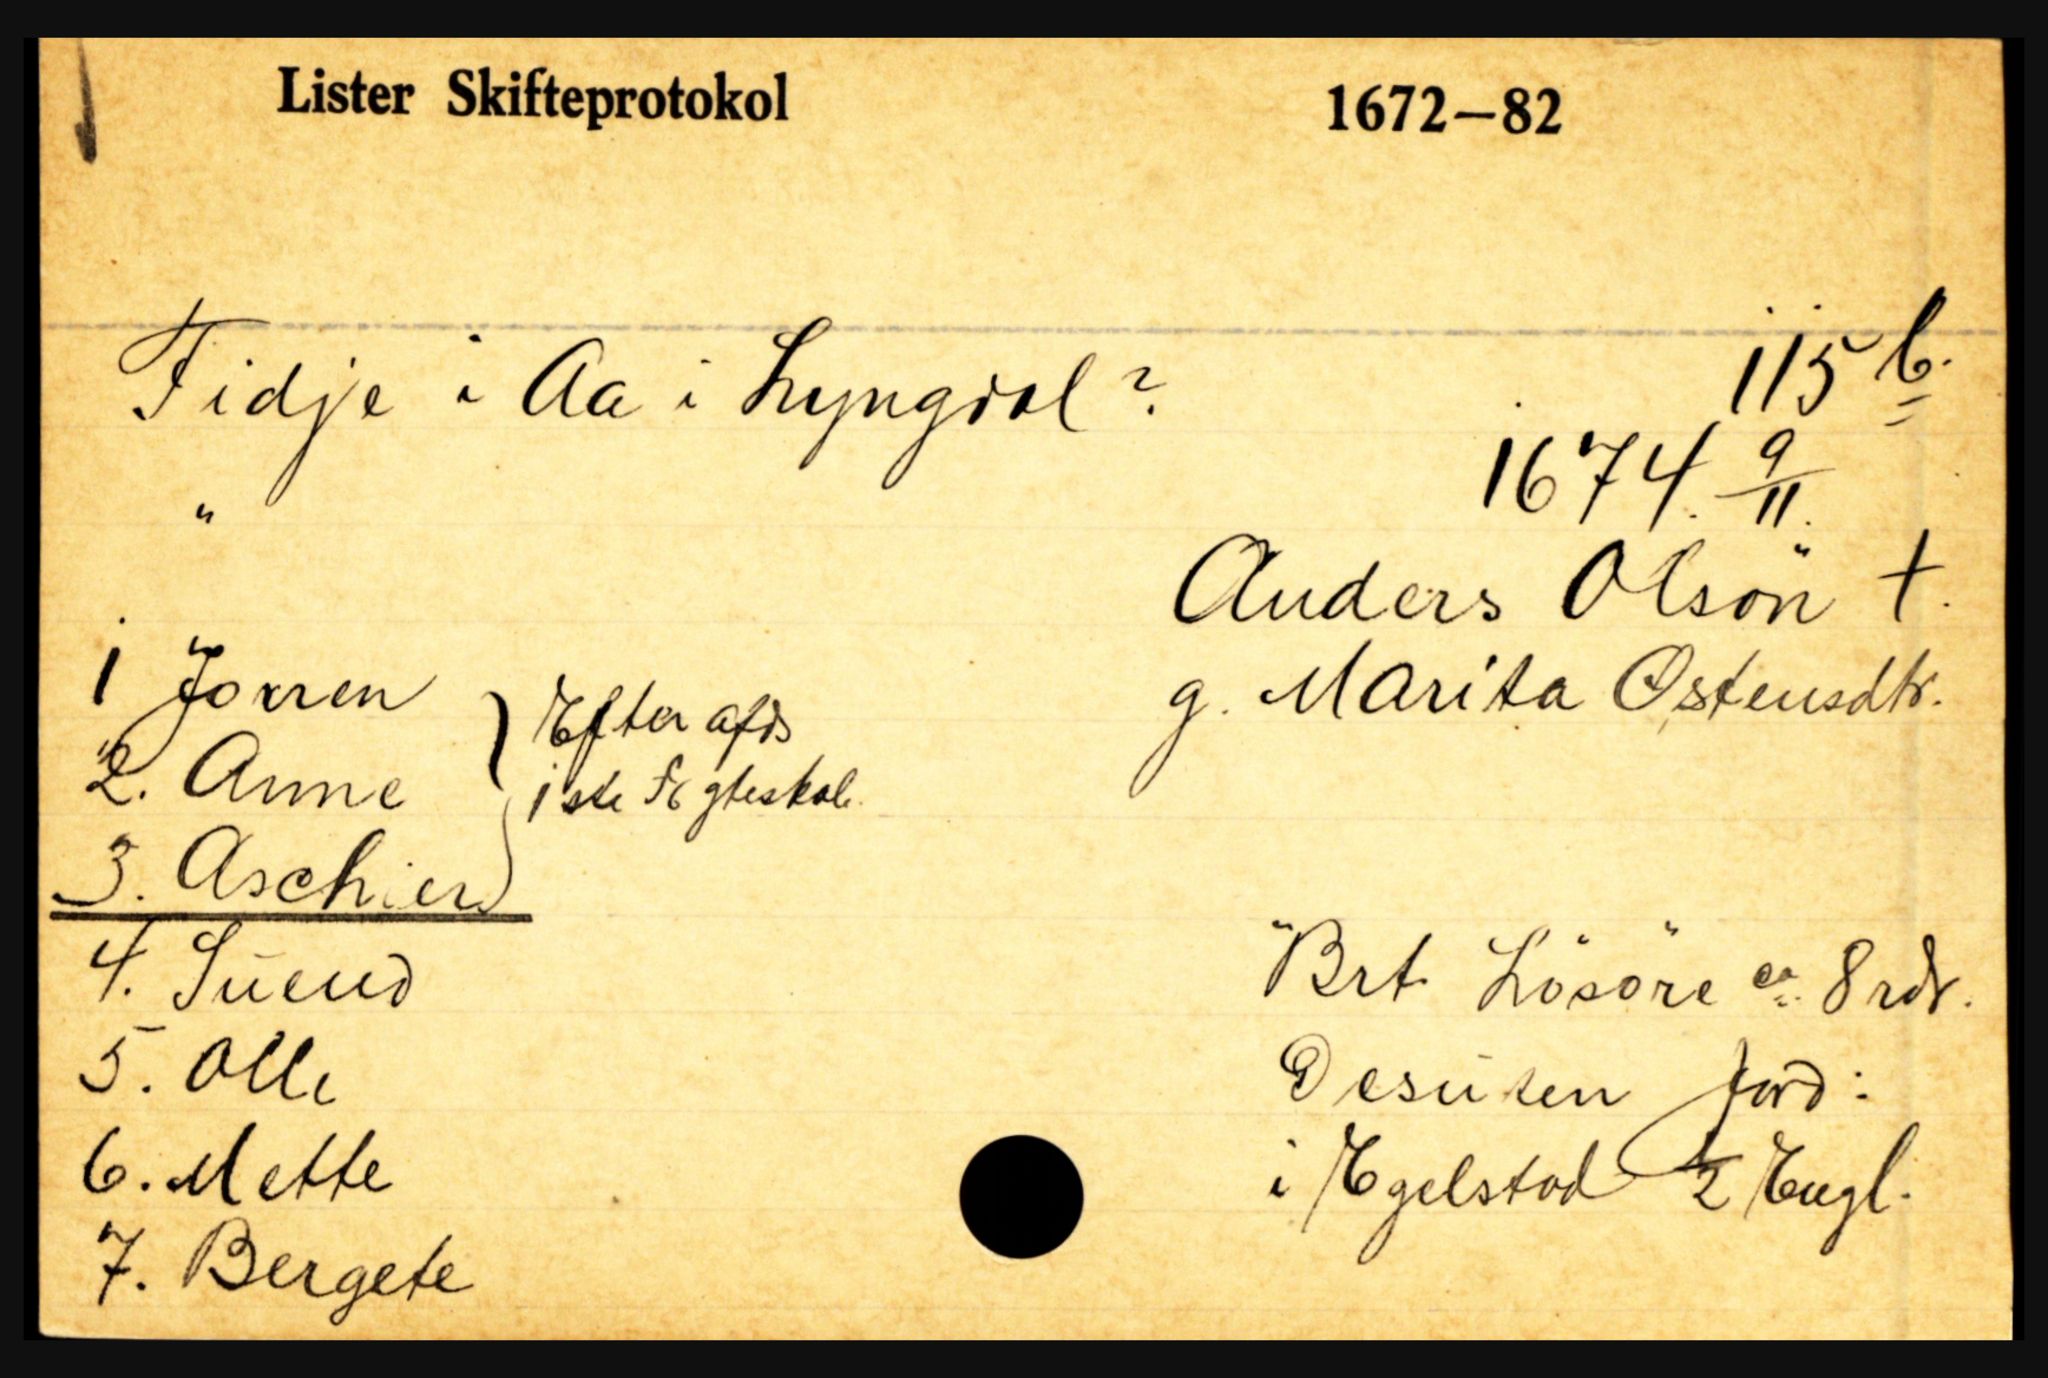 Lister Skifteprotokol 1672—82
Fidje i Aa i Lyngdal? 115 b.
1674. 9/11.
"
Anders Olsön †.
g. Marita Østensdtr.
1 Jorren
2. Anne
3. Aschier
} Efter afds
1ste Ægteskab.
4. Suend
5. Olle
6. Mette
7. Bergete
Brt Lösöre ca. 8 rdr.
Desuten Jord:
i Egelstad ½ Engl.